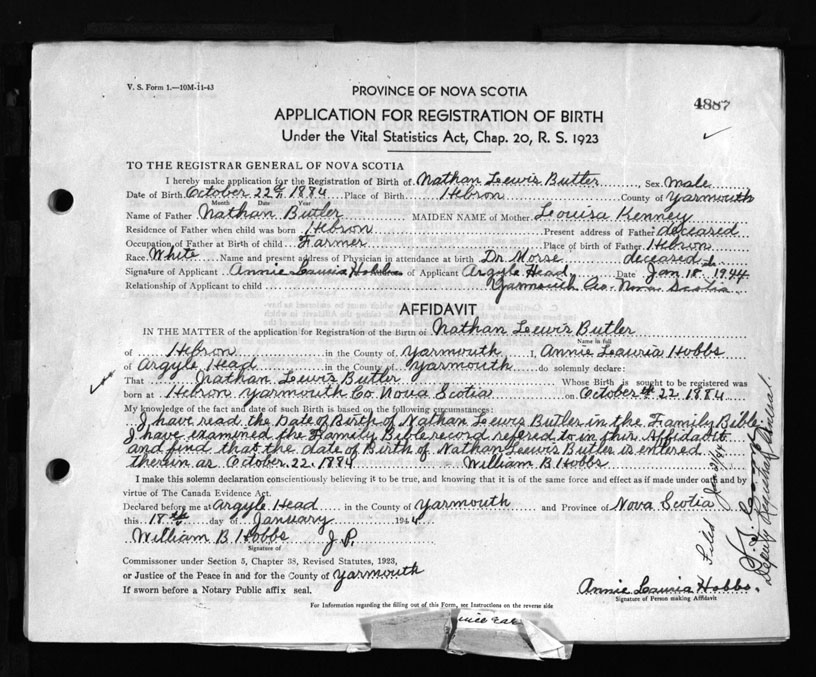 V. S. Form 1.—10M-11-43
PROVINCE OF NOVA SCOTIA
4887
APPLICATION FOR REGISTRATION OF BIRTH
Under the Vital Statistics Act, Chap. 20, R. S. 1923
TO THE REGISTRAR GENERAL OF NOVA SCOTIA
I hereby make application for the Registration of Birth of Nathan Lewis Butler, Sex Male
Date of Birth October 22 1884 Place of Birth Hebron County of Yarmouth
Month Date Year
Name of Father Nathan Butler MAIDEN NAME of Mother Louisa Kenney
Residence of Father when child was born Hebron Present address of Father deceased
Occupation of Father at Birth of child Farmer Place of birth of Father Hebron
Race White Name and present address of Physician in attendance at birth Dr Morse deceased
Signature of Applicant Annie Lauria Hobbs of Applicant Argyle Head Date Jan 18 1944
Relationship of Applicant to child Yarmouth Co. Nova Scotia
AFFIDAVIT
IN THE MATTER of the application for Registration of the Birth of Nathan Lewis Butler
Name in full
of Hebron in the County of Yarmouth I, Annie Lauria Hobbs
of Argyle Head in the County of Yarmouth do solemnly declare:
That Nathan Lewis Butler Whose Birth is sought to be registered was
born at Hebron Yarmouth Co Nova Scotia on October 22 1884
My knowledge of the fact and date of such Birth is based on the following circumstances:
I have read the Date of Birth of Nathan Lewis Butler in the Family Bible
I have examined the Family Bible record refered to in this Affidavit
and find that the date of Birth of Nathan Lewis Butler is entered
therein as October 22 1884 William B Hobbs
I make this solemn declaration conscientiously believing it to be true, and knowing that it is of the same force and effect as if made under oath and by
virtue of The Canada Evidence Act.
Declared before me at Argyle Head in the County of Yarmouth and Province of Nova Scotia
this 18th day of January 1944
William B Hobbs J P.
Signature of
Commissioner under Section 5, Chapter 38, Revised Statutes, 1923,
or Justice of the Peace in and for the County of Yarmouth
If sworn before a Notary Public affix seal.
Annie Lauria Hobbs.
Signature of Person making Affidavit
For Information regarding the filling out of this Form, see Instructions on the reverse side
Filed Jan 21/44
Deputy Registrar General.